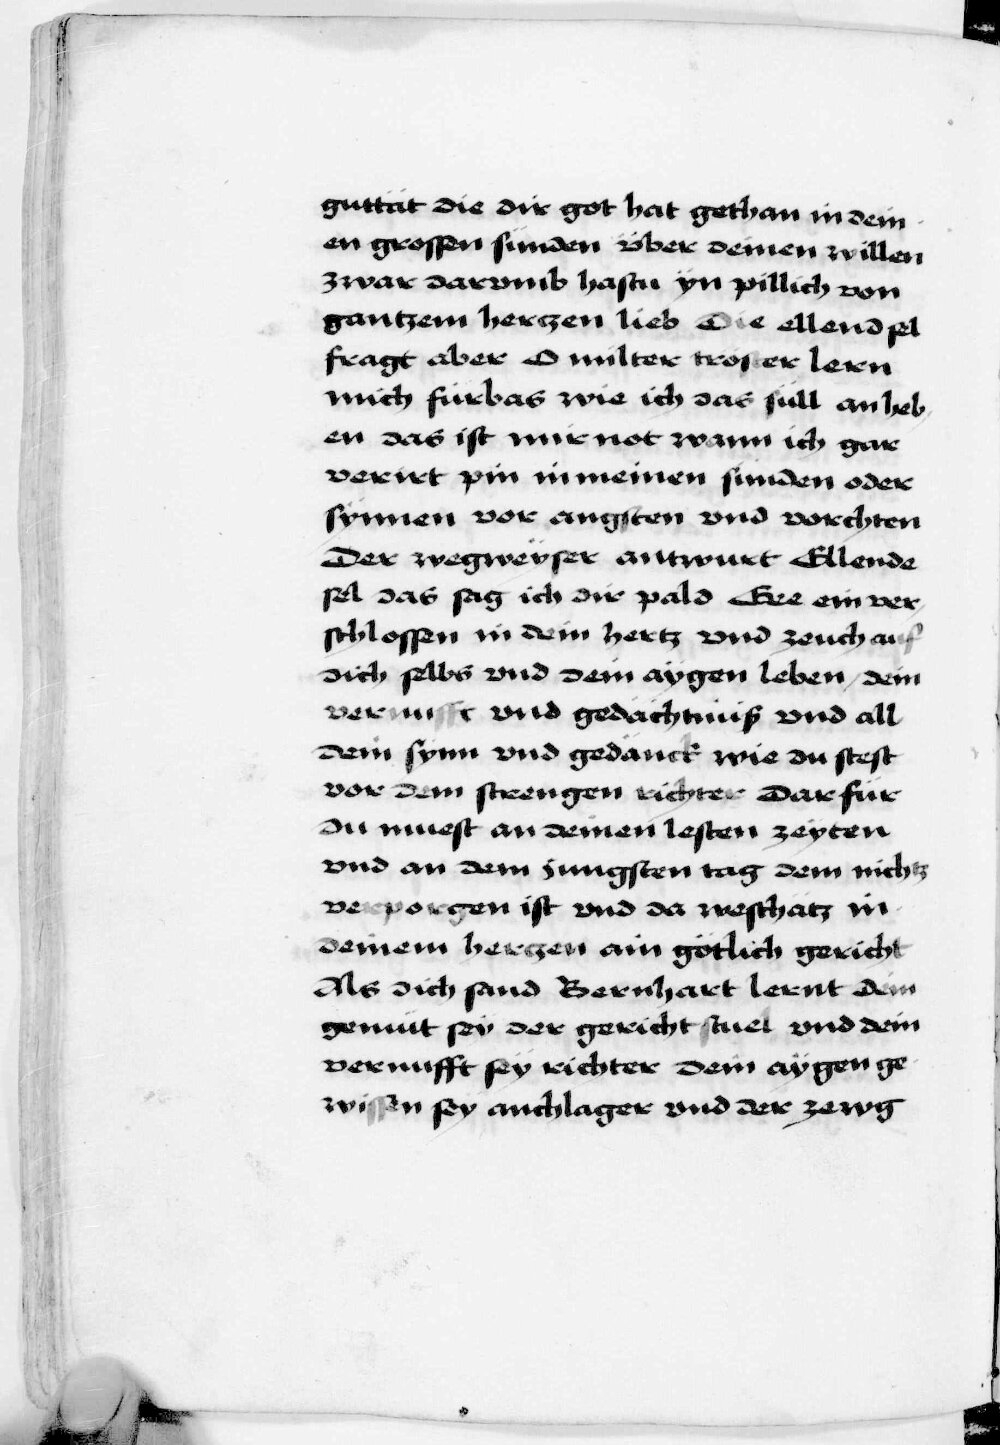 guttät die dir got hat gethan in dein
en grossen sünden über deinen willen
zwar darvmb hastu yn pillich von
gantzem herczen lieb Die ellend sel
fragt aber O milter troster lern
mich fürbas wie ich das süll anheb
en das ist mir not wann ich gar
verirt pin in meinen sünden oder
synnen vor angsten vnd vorchten
Der wegweyser antwurt Ellende
sel das sag ich dir pald Gee ein ver
schlossen in dein hertz vnd zeuch auf
dich selbs vnd dein aÿgen leben / dein
vernufft vnd gedächtnüß vnd all
dein synn vnd gedänck wie du stest
vor dem strengen richter Dar für
du muest an deinen lesten zeyten
vnd an dem jungsten tag dem nichtz
verporgen ist vnd da weschätz in
deinem herczen ain götlich gericht
Als dich sand Bernhart lernt dein
gemüt sey der gericht stuel vnd dein
vernufft sëy richter dein aÿgen ge
wissen sey anchlager vnd der zewg